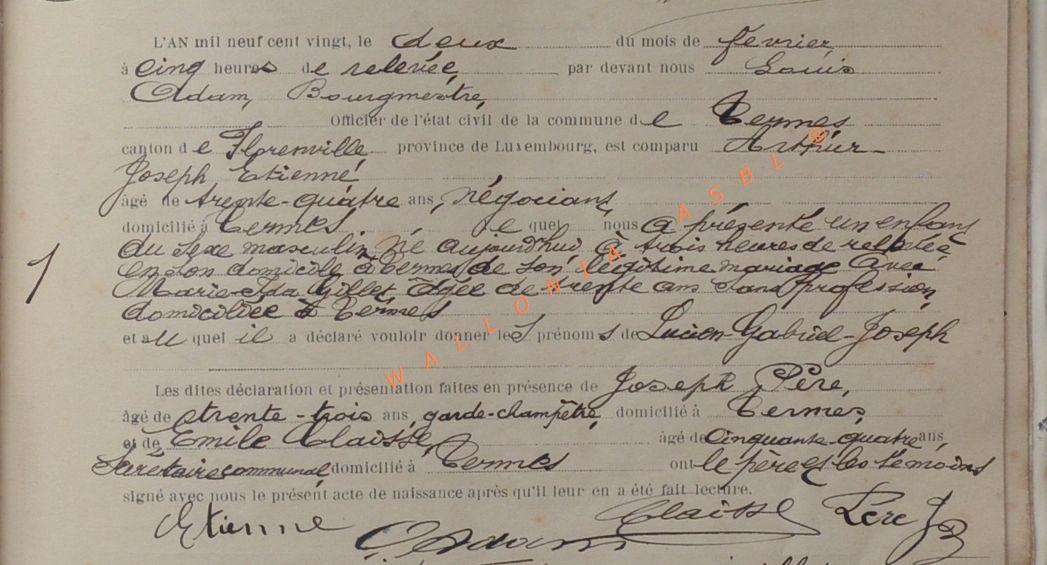 L'AN mil neuf cent vingt, le deux du mois de février,
à cinq heures de relevée, par devant nous Louis
Adam, Bourgmestre,
Officier de l'état civil de la commune de Termes
canton de Florenville, province de Luxembourg, est comparu Arthur-
Joseph Etienne,
âgé de trente-quatre ans, négociant,
domicilié à Termes, lequel nous a présenté un enfant
du sexe masculin, né aujourd'hui, à trois heures de relevée
en son domicile à Termes, de son légitime mariage avec
Marie-Ida Gillet, âgée de trente ans, sans profession,
domiciliée à Termes
1
et auquel il a déclaré vouloir donner les prénoms de Lucien-Gabriel-Joseph
Les dites déclaration et présentation faites en présence de Joseph Père,
âgé de trente-trois ans, garde-champêtre, domicilié à Termes,
et de Emile Claisse, âgé de cinquante-quatre ans,
Secrétaire communal, domicilié à Termes ont le père et les témoins
signé avec nous le présent acte de naissance après qu'il leur en a été fait lecture.
Etienne Adam Claisse Père J
WALLONIA ASBL